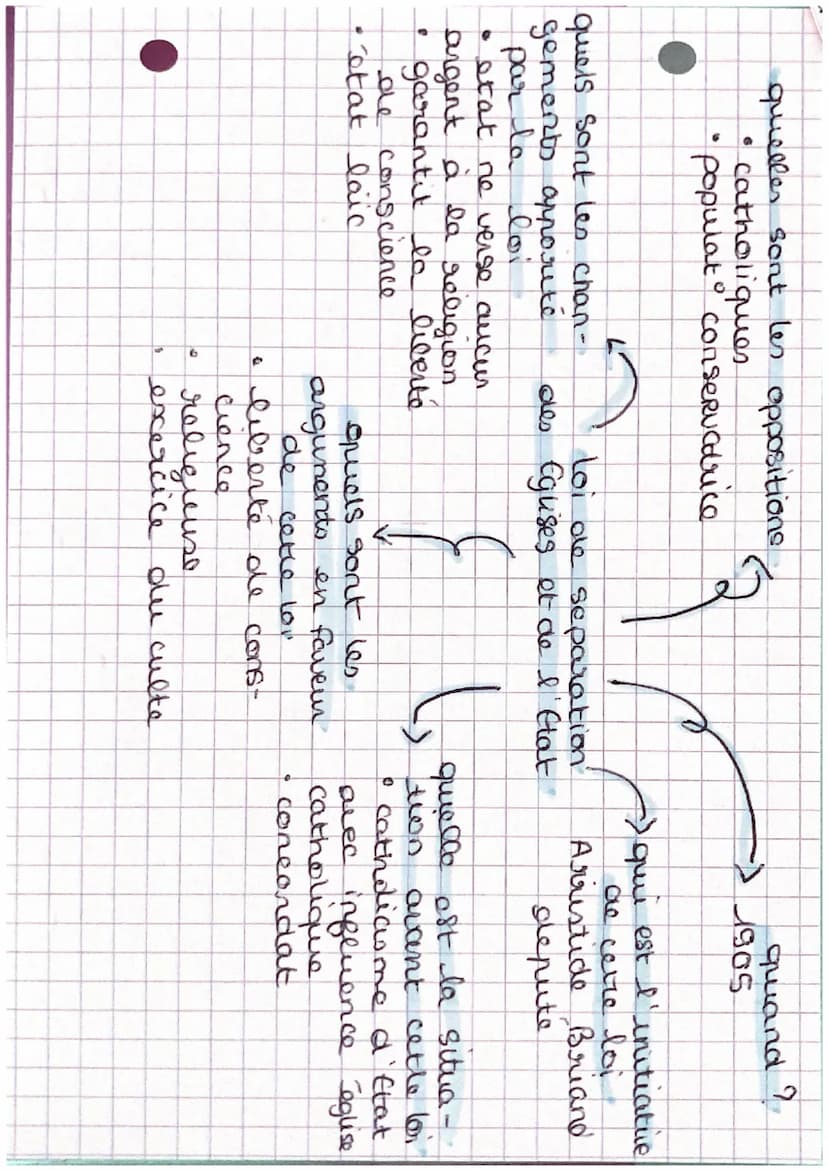 quelles sont les oppositions
• catholiques
• populat° conservatrice
quand ?
1905
qui est l'initiative
de cette loi
Aristide Briand
député
quels sont les chan-
gements apporté
par la loi
• état ne verse aucun
argent à la religion
• garantit la liberté
de conscience
• état laïc
loi de separation
des Églises et de l'État
quelle est la situa-
tion avant cette loi
• catholicisme d'État
avec influence Église
catholique
• concordat
quels sont les
arguments en faveur
de cette loi
• liberté de cons-
cience
• religieuse
• exercice du culte